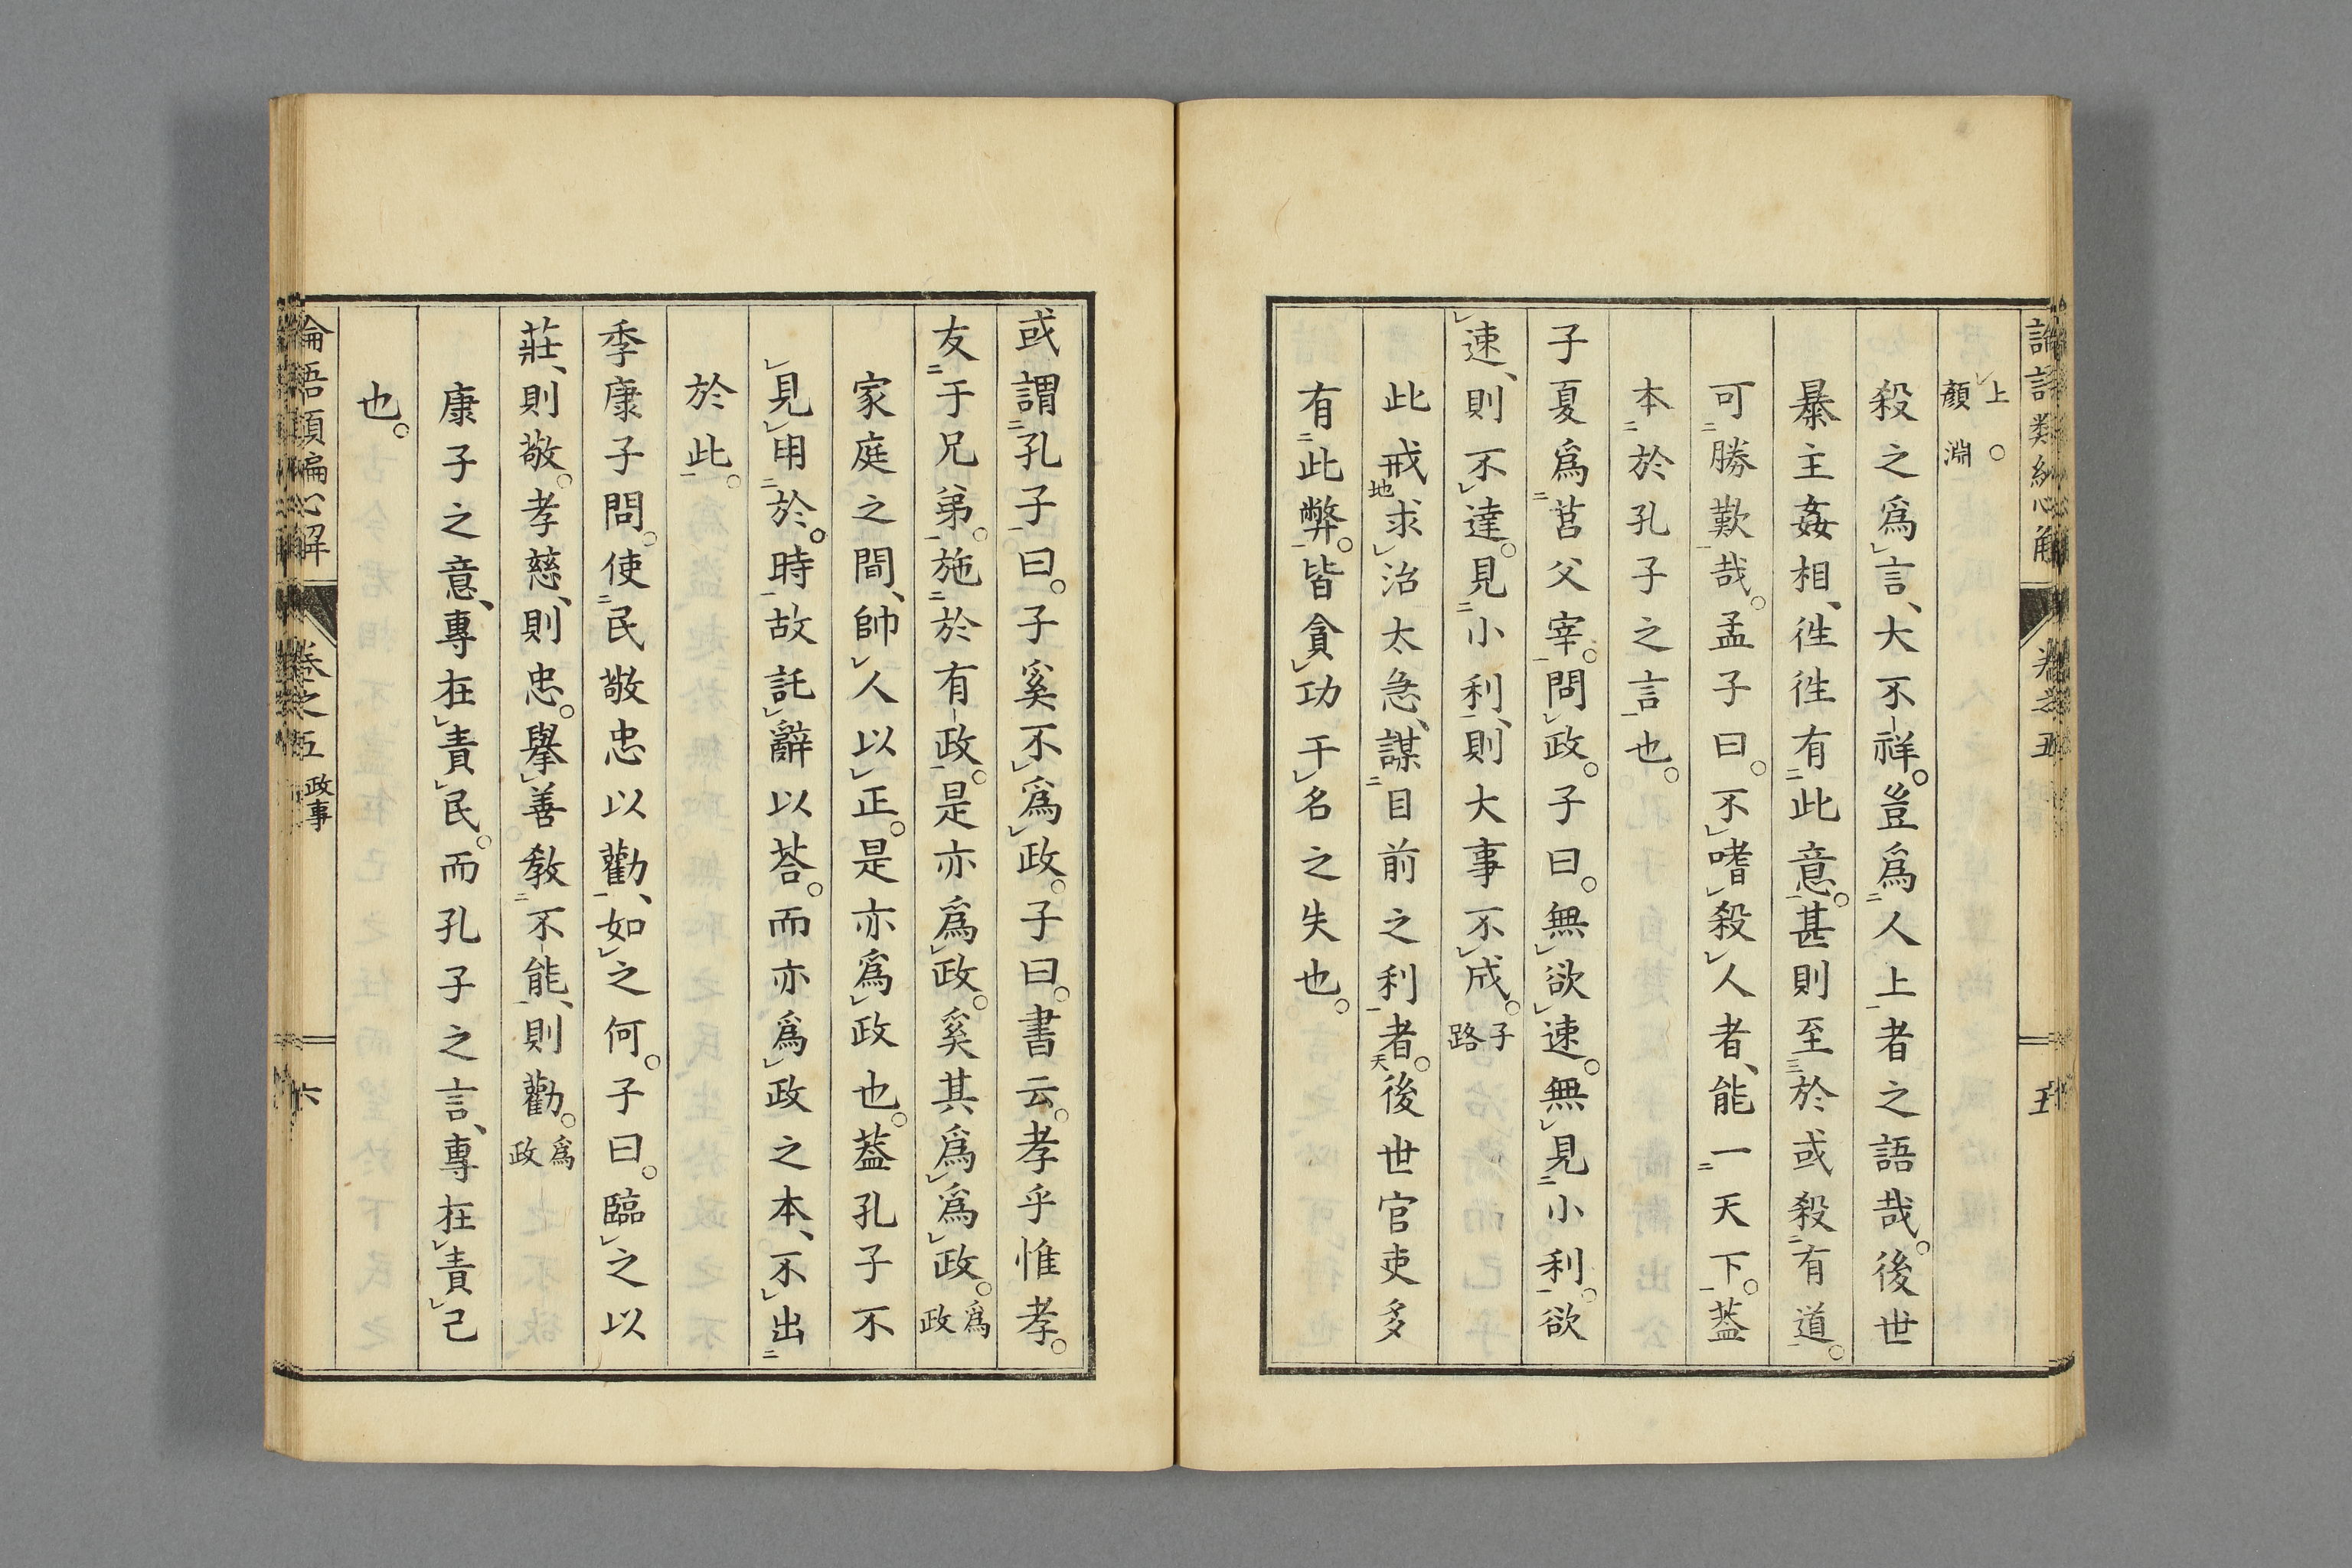 上。顏淵
殺之爲言、大不祥。豈爲人上者之語哉。後世
暴主姦相、徃徃有此意。甚則至於或殺有道。
可勝歎哉。孟子曰。不嗜殺人者、能一天下。葢
本於孔子之言也。
子夏爲莒父宰。問政。子曰。無欲速。無見小利。欲
速、則不達。見小利、則大事不成。子路
此戒求治太急、謀目前之利者。後世官吏多
有此弊。皆貪功干名之失也。
或謂孔子曰。子奚不爲政。子曰。書云。孝乎惟孝。
友于兄弟。施於有政。是亦爲政。奚其爲爲政。爲政
家庭之間、帥人以正。是亦爲政也。葢孔子不
見用於時。故託辭以荅。而亦爲政之本、不出
於此。
季康子問。使民敬忠以勸、如之何。子曰。臨之以
莊、則敬。孝慈、則忠。擧善敎不能、則勸。爲政
康子之意、專在責民。而孔子之言、專在責己
也。
卷之五 政事
六